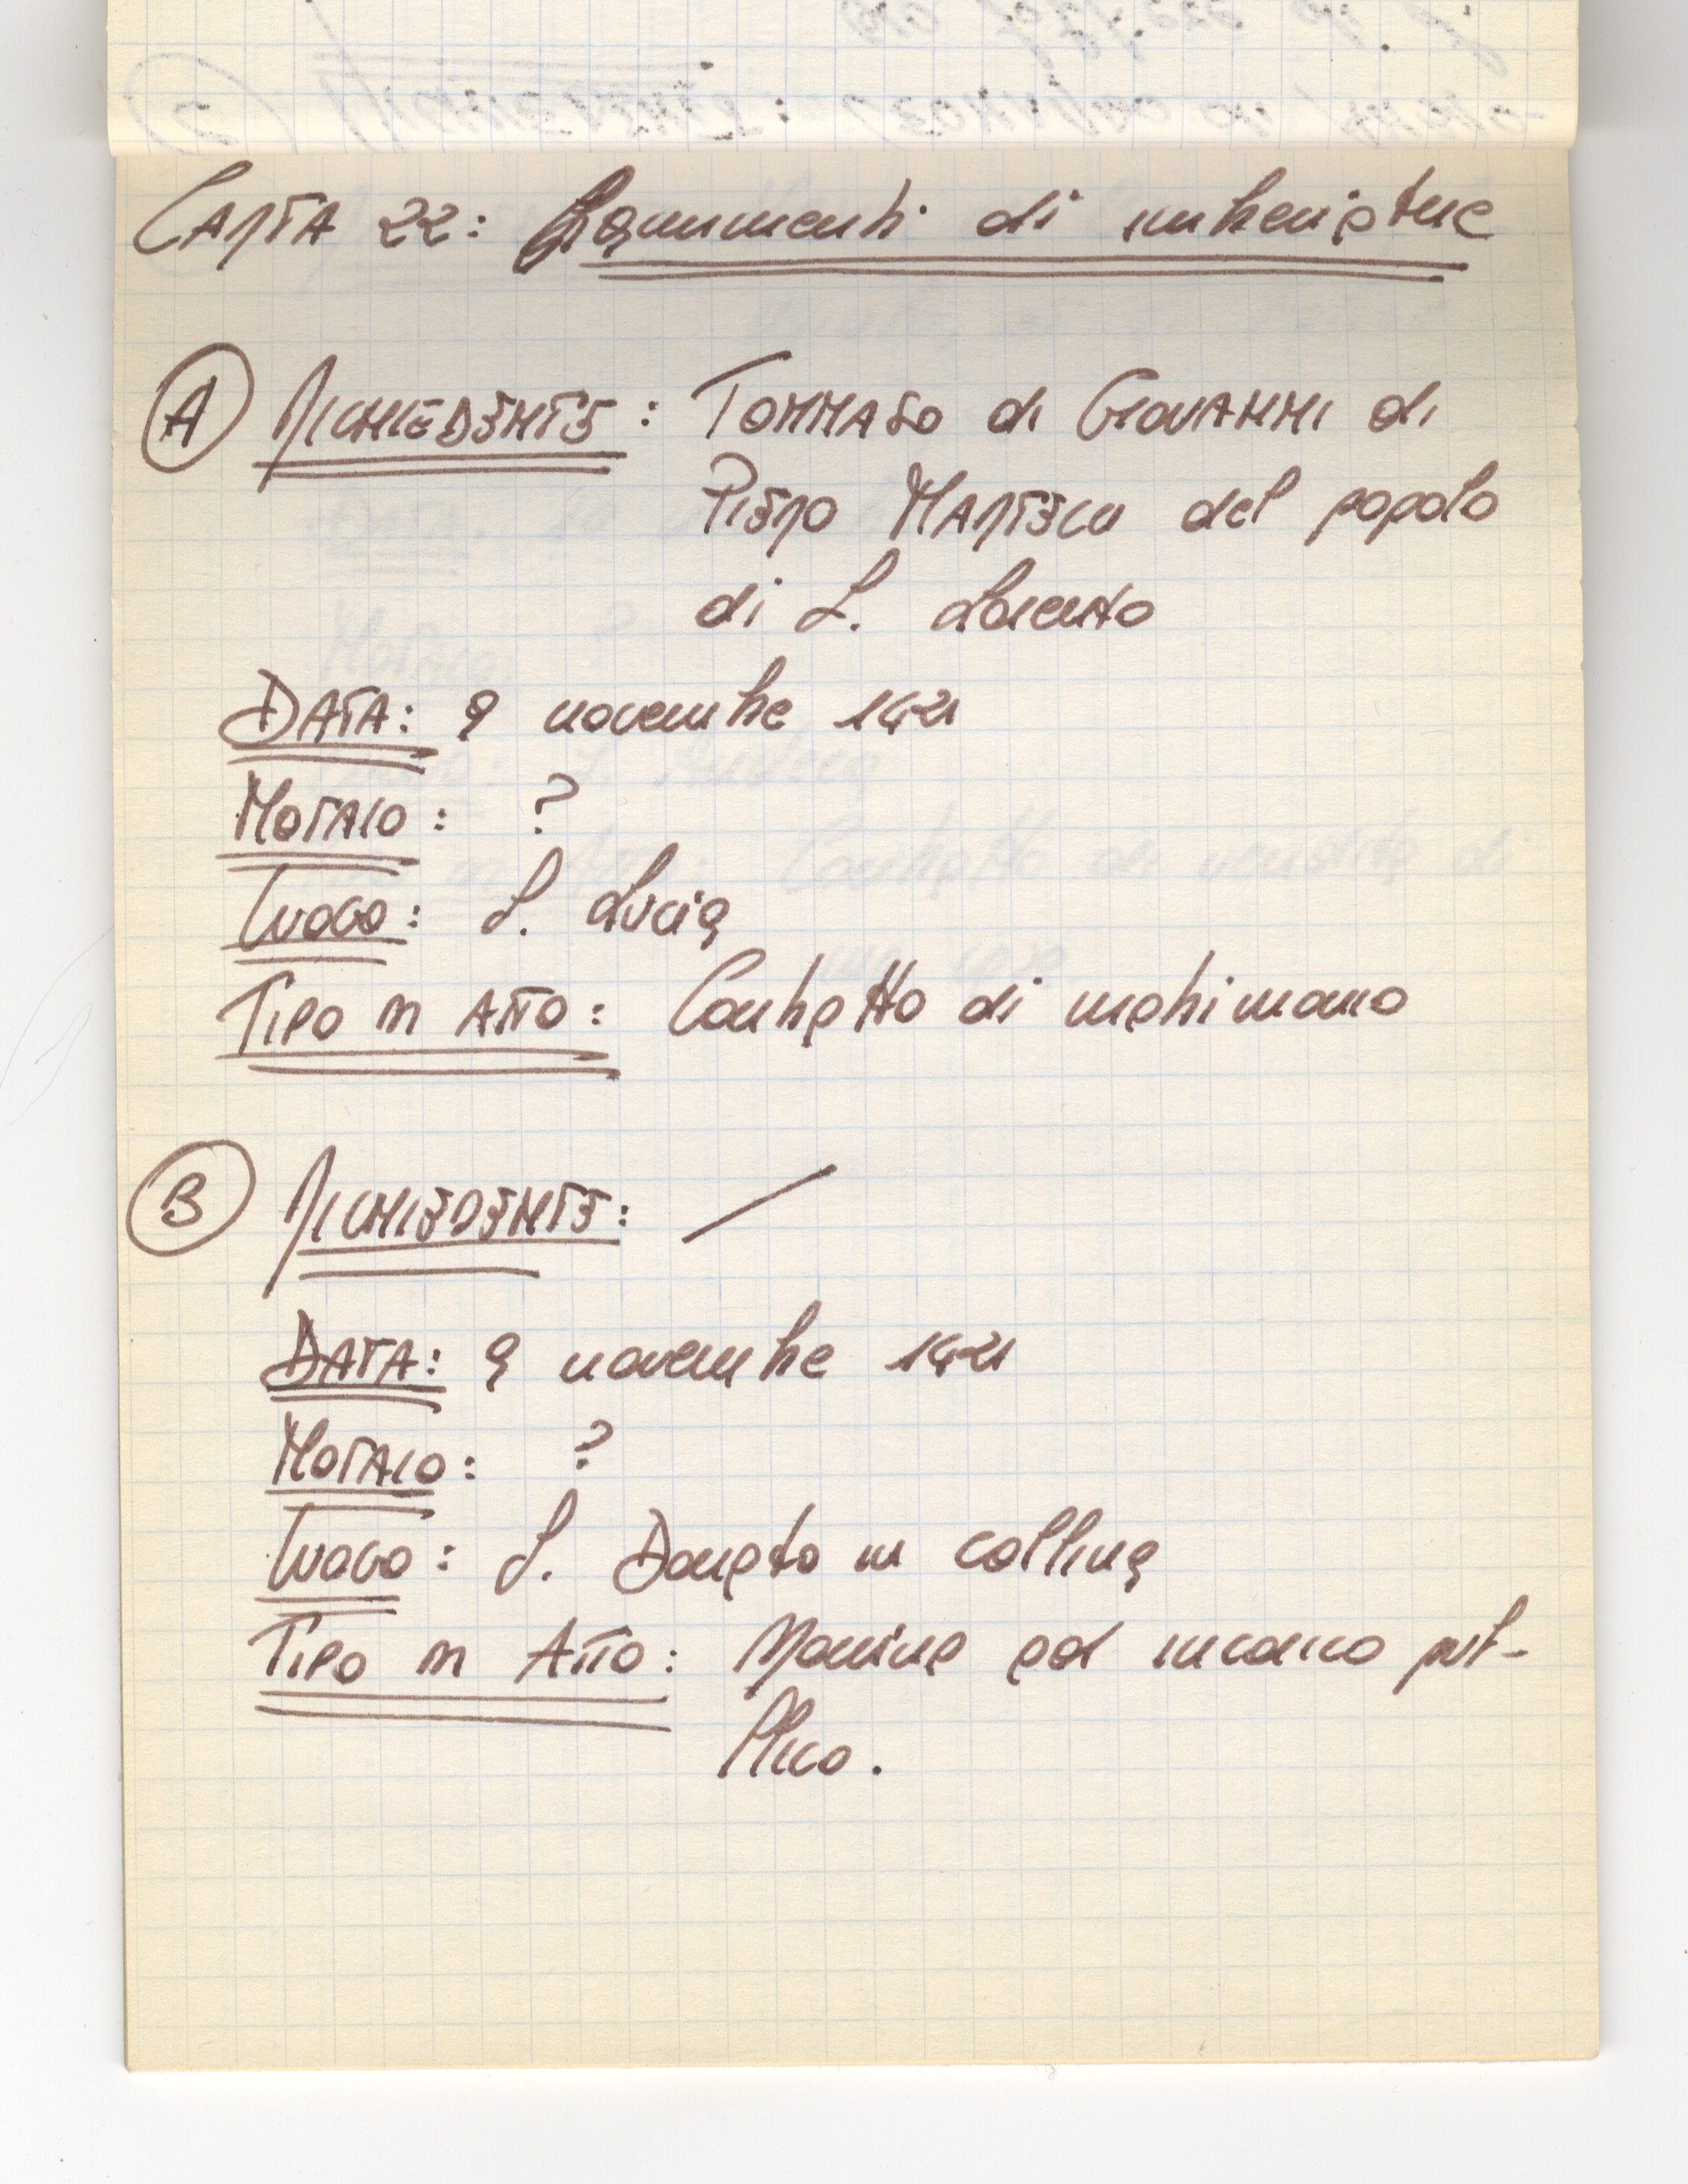 CARTA 22: Frammenti di imbreviature
A RICHIEDENTE: TOMMASO di GIOVANNI di
PIERO MARTSCU del popolo
di S. Lorenzo
DATA: 9 novembre 1421
NOTAIO: ?
LUOGO: S. Lucia
TIPO DI ATTO: Contratto di matrimonio
B RICHIEDENTE:
DATA: 9 novembre 1421
NOTAIO: ?
LUOGO: S. Donato in collina
TIPO DI ATTO: Nomina ad incarico pub-
blico.